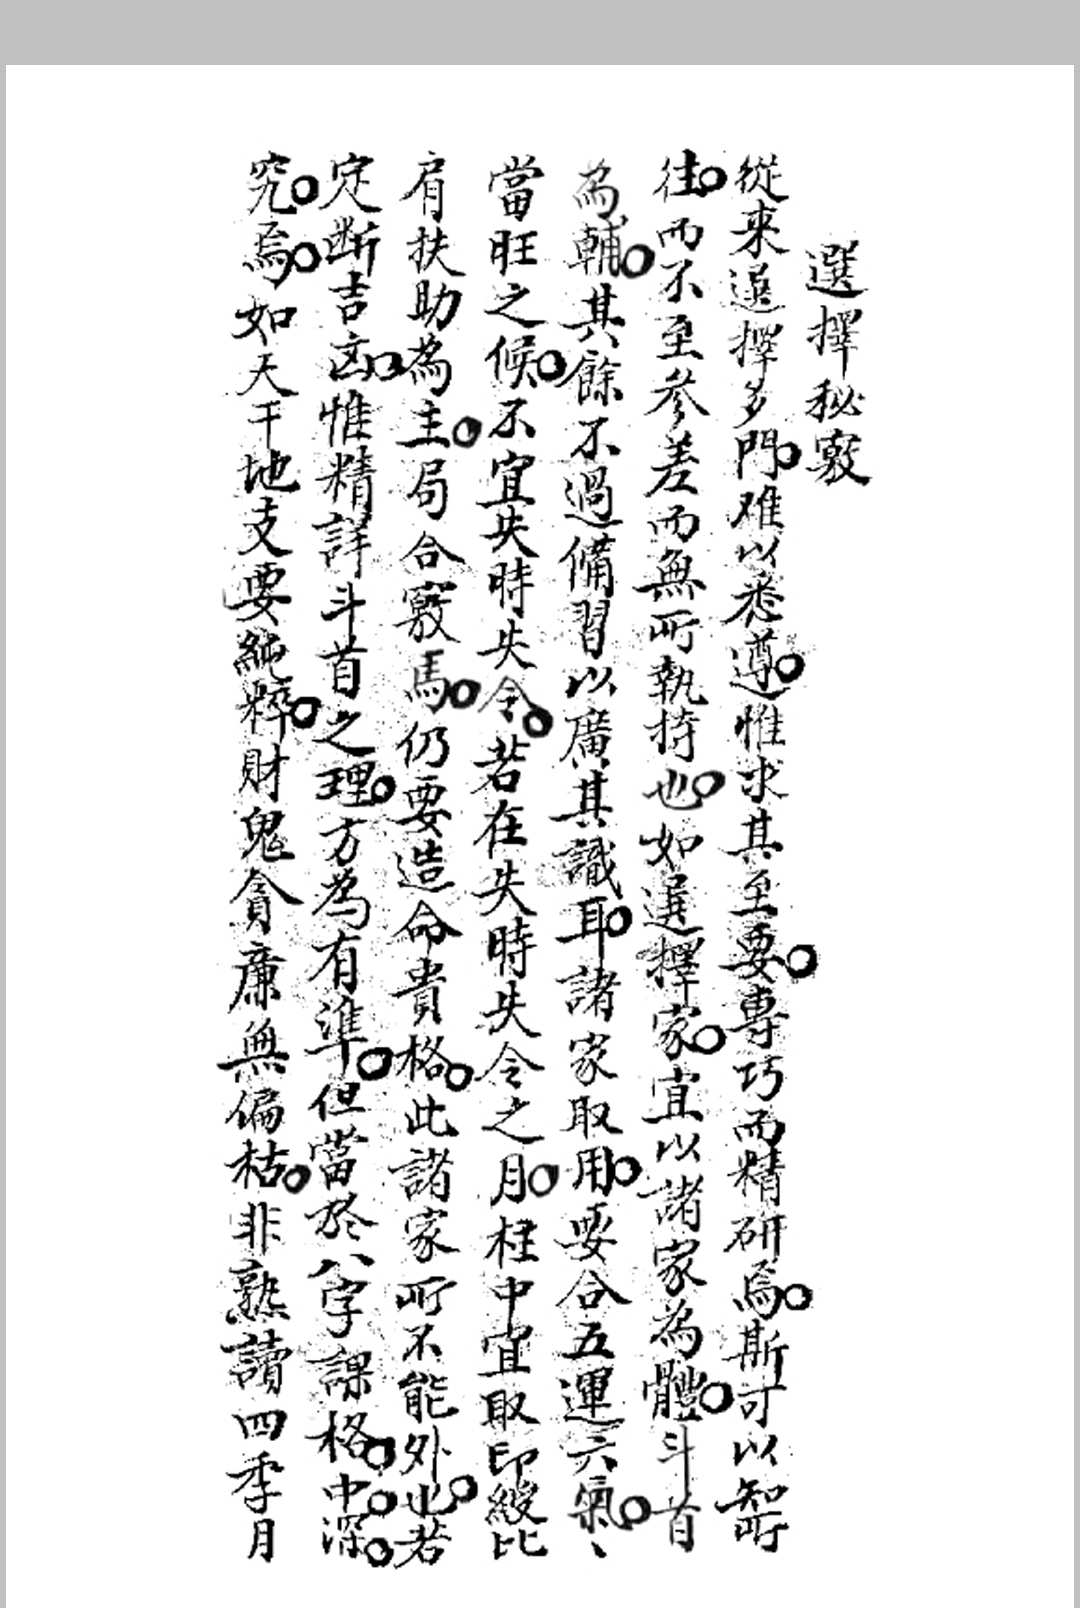 選擇秘竅
從來選擇多門○难以悉遵○惟求其至要○專巧而精研焉○斯可以知所
往○而不至參差而無所執持也○如選擇家○宜以諸家為體○斗首
為輔○其餘不過備習以廣其識耳○諸家取用○要合五運六氣○〻
當旺之候○不宜失時失令○若在失時失令之月○柱中宜取印綬比
肩扶助為主○局合竅馬○仍要造命貴格○此諸家所不能外也○若
定断吉凶○惟精詳斗首之理○方為有準○但當於八字課格○中○深○
究○焉○如天干地支要純粹○財鬼貪廉無偏枯○非熟讀四季月